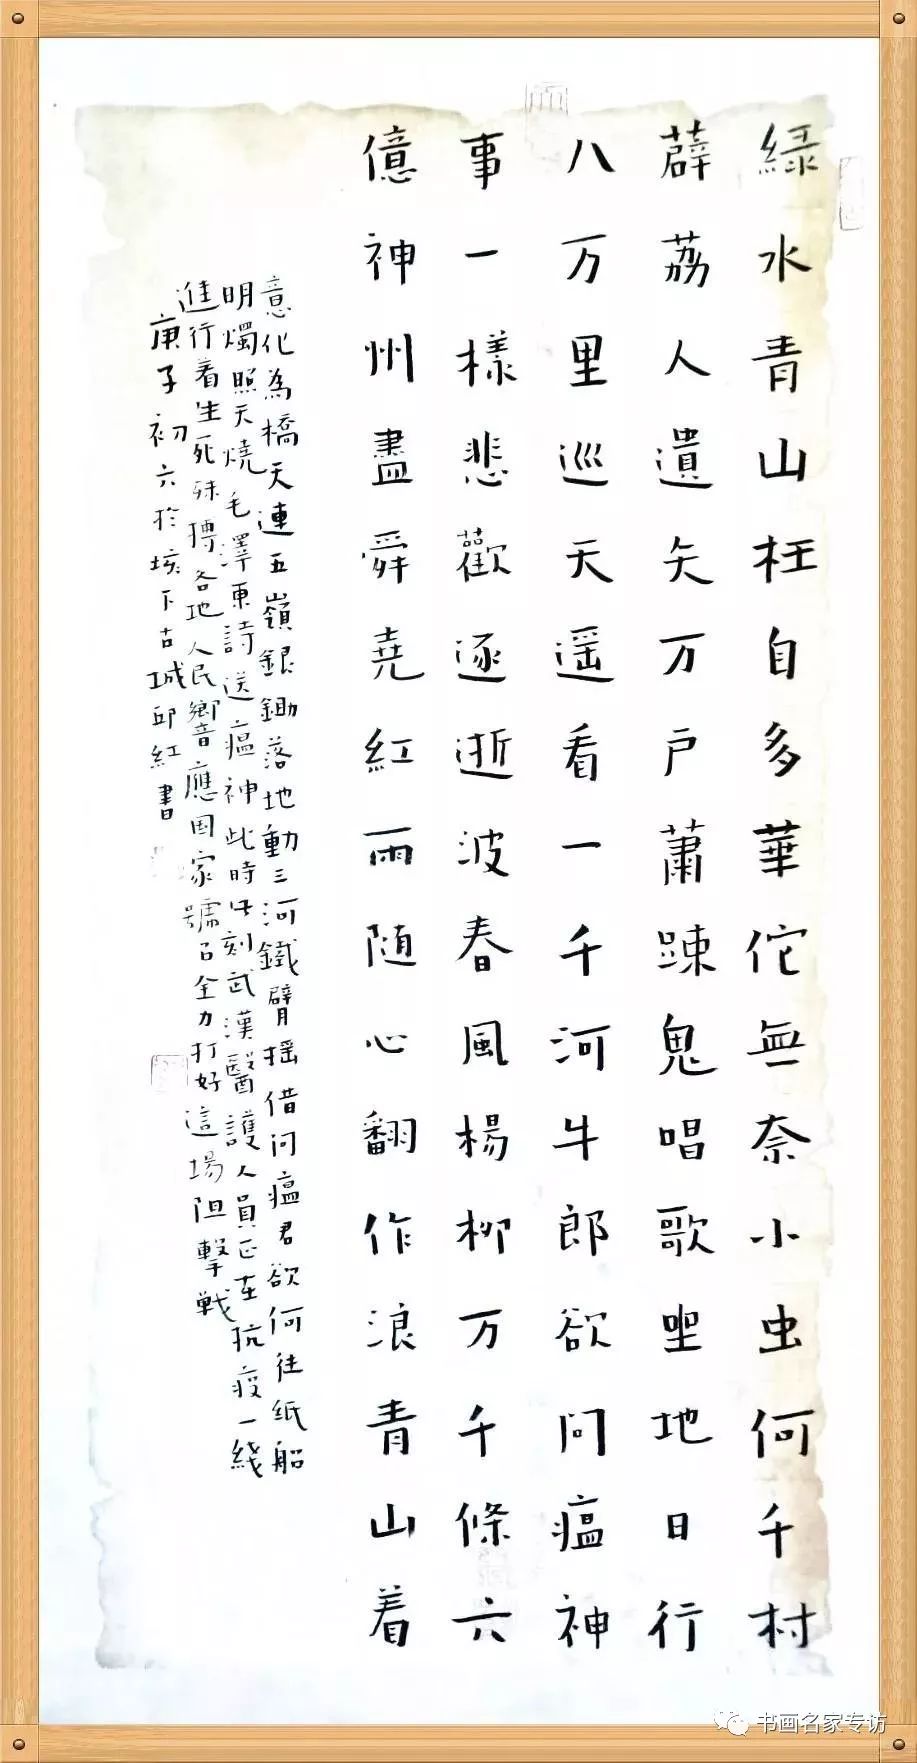 綠水青山枉自多華佗無奈小虫何千村
薜荔人遺矢万戶蕭踈鬼唱歌坐地日行
八万里巡天遥看一千河牛郎欲问瘟神
事一樣悲歡逐逝波春風楊柳万千條六
億神州盡舜堯紅雨随心翻作浪青山着
意化為橋天連五嶺銀鋤落地動三河鐵臂摇借问瘟君欲何往纸船
明燭照天燒毛澤東詩送瘟神此時此刻武漢醫護人員正在抗疫一綫
進行着生死殊搏各地人民響應国家號召全力打好這場阻擊戦
庚子初六於垓下古城邱紅書
书画名家专访